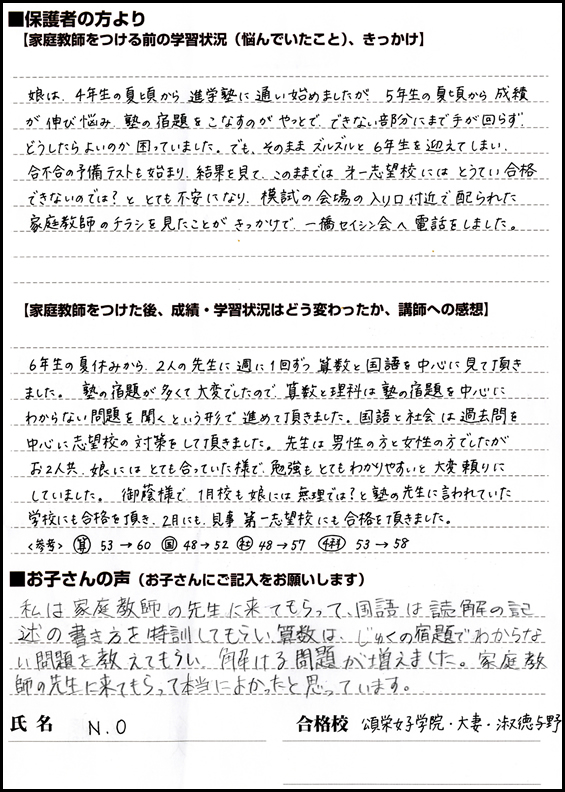 ■保護者の方より
【家庭教師をつける前の学習状況（悩んでいたこと）、きっかけ】
娘は、4年生の夏頃から進学塾に通い始めましたが、5年生の夏頃から成績
が伸び悩み、塾の宿題をこなすのがやっとで、できない部分にまで手が回らず、
どうしたらよいのか困っていました。でも、そのままズルズルと6年生を迎えてしまい、
合不合の予備テストも始まり、結果を見て、このままでは、オ一志望校にはとうてい合格
できないのでは？と、とても不安になり、模試の会場の入り口付近で配られた
家庭教師のチラシを見たことがきっかけで、一橋セイシン会へ電話をしました。
【家庭教師をつけた後、成績・学習状況はどう変わったか、講師への感想】
6年生の夏休みから、2人の先生に週に1回ずつ算数と国語を中心に見て頂き
ました。塾の宿題が多くて大変でしたので、算数と理科は塾の宿題を中心に
わからない問題を聞くという形で進めて頂きました。国語と社会は過去問を
中心に志望校の対策をして頂きました。先生は男性の方と女性の方でしたが
お2人共、娘にはとても合っていた様で、勉強もとてもわかりやすいと大変頼りに
していました。御蔭様で、1月校も娘には無理では？と塾の先生に言われていた
学校にも合格を頂き、2月にも、見事第一志望校にも合格を頂きました。
<参考> 算 53→60 国 48→52 社 48→57 理科 53→58
■お子さんの声（お子さんにご記入をお願いします）
私は家庭教師の先生に来てもらって、国語は読解の記
述の書き方を特訓してもらい、算数は、じゅくの宿題でわからな
い問題を教えてもらい、解ける問題が増えました。家庭教
師の先生に来てもらって本当によかったと思っています。
氏名 N.O 合格校 頌栄女子学院・大妻・淑徳与野